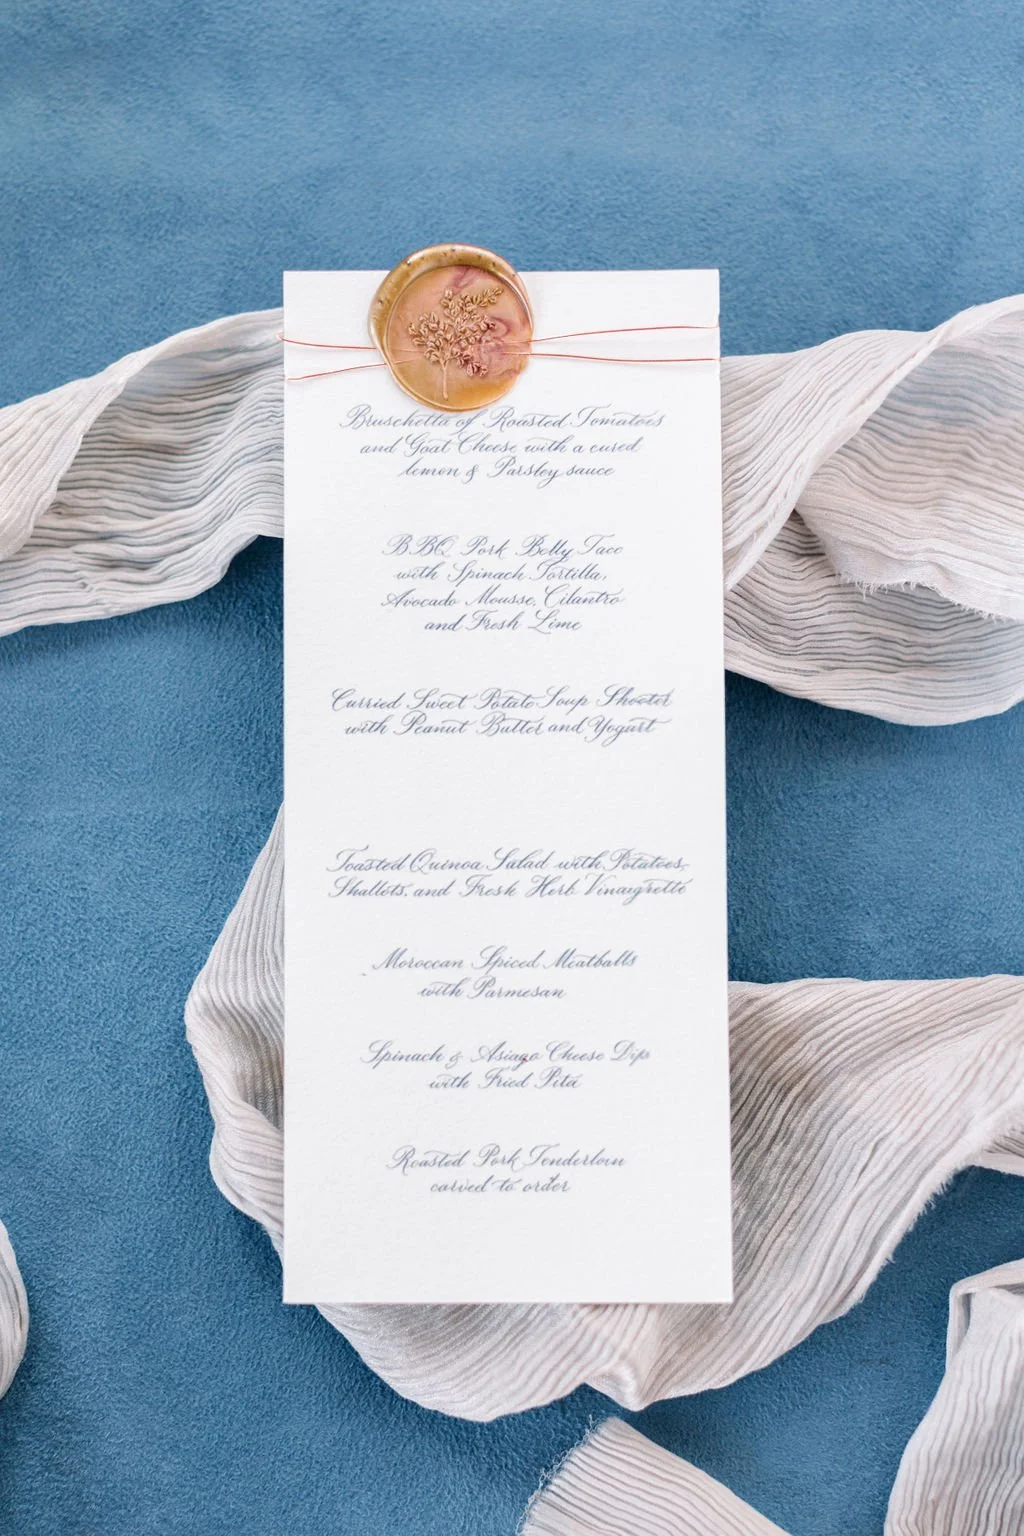 Bruschetta of Roasted Tomatoes
and Goat Cheese with a cured
lemon & Parsley sauce
BBQ Pork Belly Taco
with Spinach Tortilla,
Avocado Mousse, Cilantro
and Fresh Lime
Curried Sweet Potato Soup Shooter
with Peanut Butter and Yogurt
Toasted Quinoa Salad with Potatoes,
Shallots, and Fresh Herb Vinaigrette
Moroccan Spiced Meatballs
with Parmesan
Spinach & Asiago Cheese Dips
with Fried Pita
Roasted Pork Tenderloin
carved to order